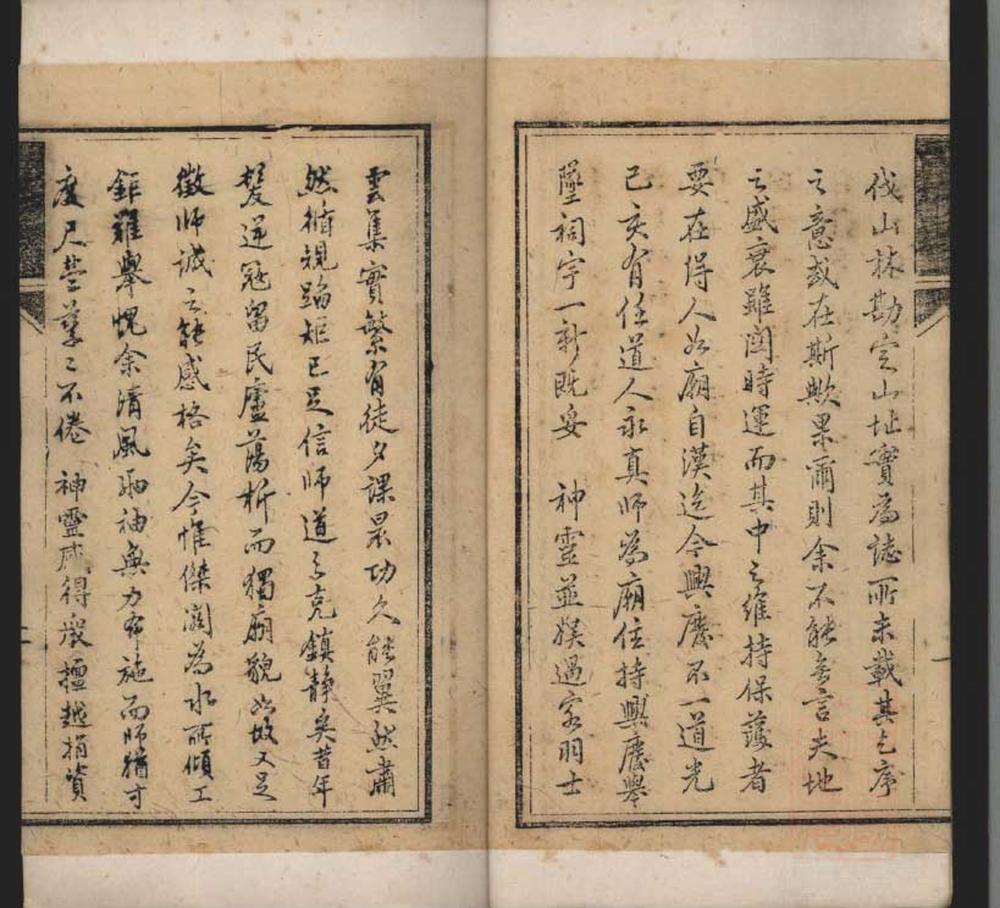 伐山林勘定山址實為誌所未載其乞序
之意或在斯歟果爾則余不能無言夫地
之盛衰雖関時運而其中之維持保護者
要在得人如廟自漢迄今興廢不一道光
己亥有任道人永真師為廟住持興廢舉
墜祠宇一新既妥　神靈並󠄀娛過客羽士
雲集實繁有徒夕課晨功久能翼然肅
然循規蹈矩已足信師道之克鎮静矣昔年
髮逆冦留民廬蕩析而獨廟貌如故又足
徵師誠之能感格矣今惟傑閣為水所傾工
鉅難舉愧余清風兩袖無力布施而師積寸
度尺孳孳之不倦　神靈感得衆檀越捐資